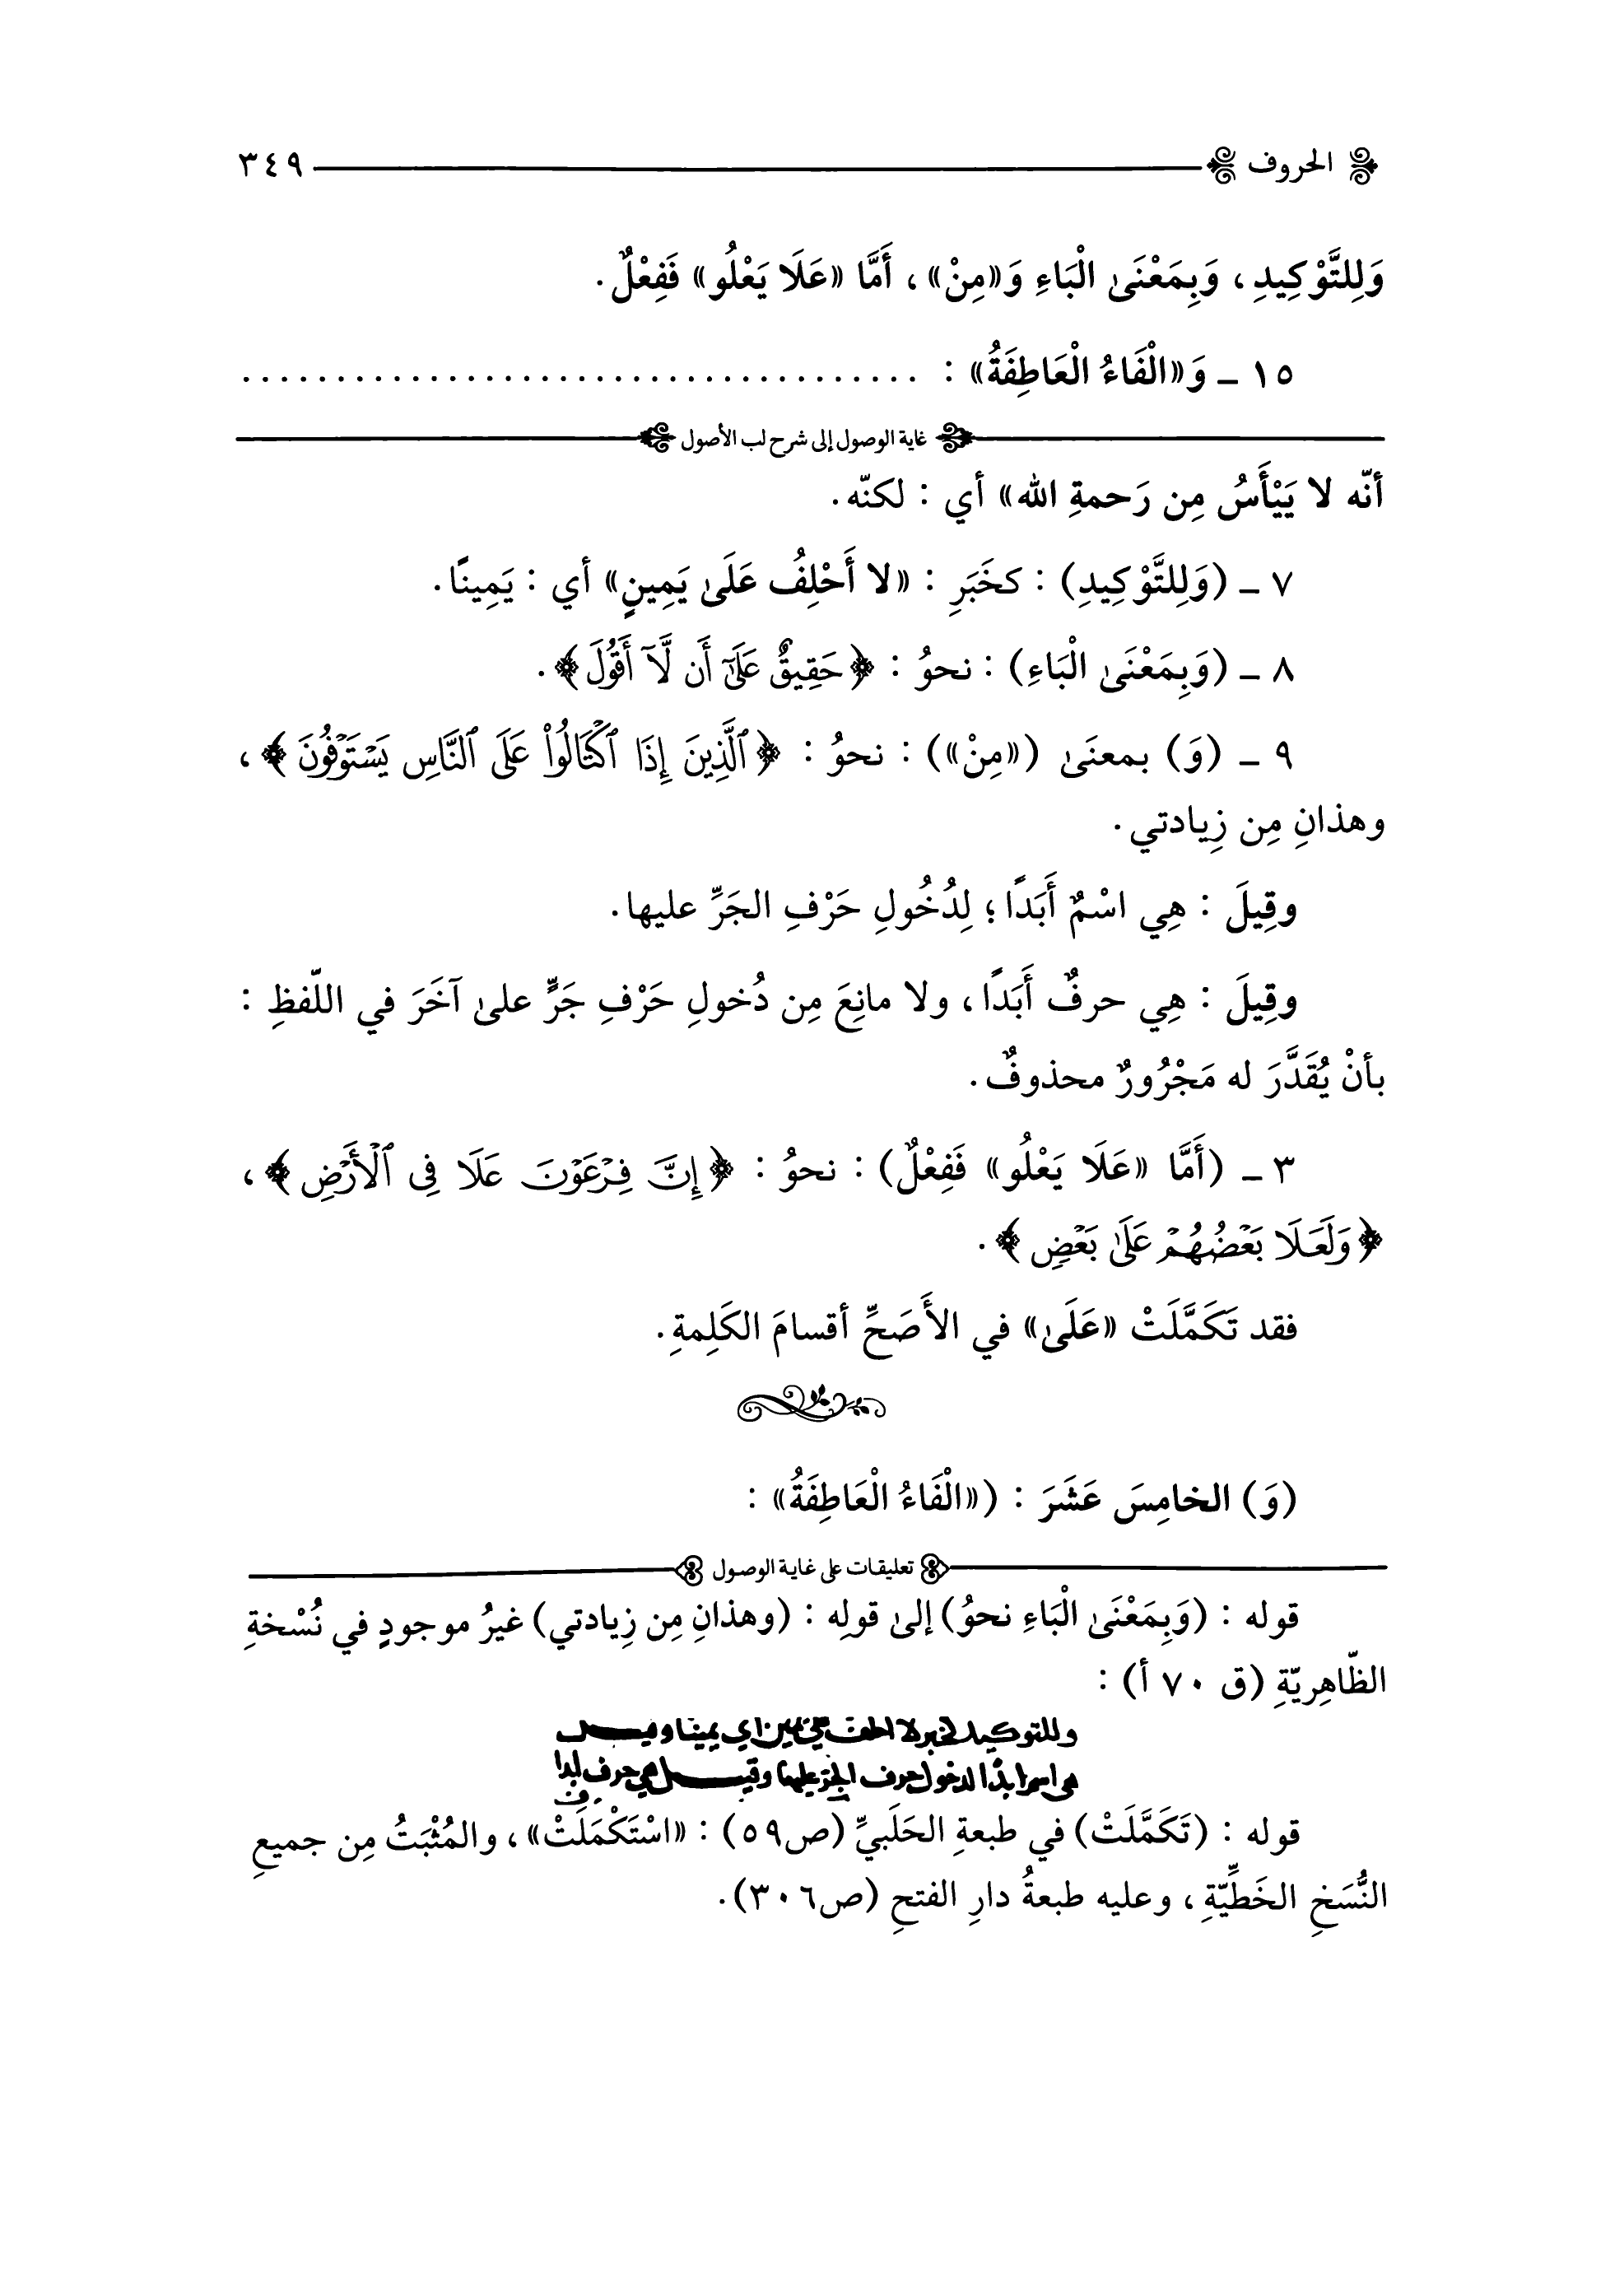 الحروف ٣٤٩
وَلِلتَّوْكِيدِ، وَبِمَعْنَىٰ الْبَاءِ وَ«مِنْ»، أَمَّا «عَلَا يَعْلُو» فَفِعْلٌ.
١٥ ـ وَ«الْفَاءُ الْعَاطِفَةُ»: .....................................
غاية الوصول إلى شرح لب الأصول
أنّه لا يَيْأَسُ مِن رَحمةِ الله» أي: لكنّه.
٧ ـ (وَلِلتَّوْكِيدِ): كخَبَرِ: «لا أَحْلِفُ عَلَىٰ يَمِينٍ» أي: يَمِينًا.
٨ ـ (وَبِمَعْنَىٰ الْبَاءِ): نحوُ: ﴿حَقِيقٌ عَلَىٰٓ أَن لَّآ أَقُولَ﴾.
٩ ـ (وَ) بمعنَىٰ («مِنْ»): نحوُ: ﴿ٱلَّذِينَ إِذَا ٱكْتَالُوا۟ عَلَى ٱلنَّاسِ يَسْتَوْفُونَ﴾،
وهذانِ مِن زِيادتي.
وقِيلَ: هِي اسْمٌ أَبَدًا؛ لِدُخُولِ حَرْفِ الجَرِّ عليها.
وقِيلَ: هِي حرفٌ أَبَدًا، ولا مانِعَ مِن دُخولِ حَرْفِ جَرٍّ علىٰ آخَرَ في اللّفظِ:
بأنْ يُقَدَّرَ له مَجْرُورٌ محذوفٌ.
٣ ـ (أَمَّا «عَلَا يَعْلُو» فَفِعْلٌ): نحوُ: ﴿إِنَّ فِرْعَوْنَ عَلَا فِى ٱلْأَرْضِ﴾،
﴿وَلَعَلَا بَعْضُهُمْ عَلَىٰ بَعْضٍ﴾.
فقد تَكَمَّلَتْ «عَلَىٰ» في الأَصَحِّ أقسامَ الكَلِمةِ.
(وَ) الخامِسَ عَشَرَ: («الْفَاءُ الْعَاطِفَةُ»:
تعليقات على غاية الوصول
قوله: (وَبِمَعْنَىٰ الْبَاءِ نحوُ) إلىٰ قولِه: (وهذانِ مِن زِيادتي) غيرُ موجودٍ في نُسْخةِ
الظّاهِريّةِ (ق ٧٠ أ):
وللتوكيد كخبر لا احلف على يمين اي يمينا وقيل
هي اسم ابدًا لدخول حرف الجر عليها وقيل هي حرف ابدا
قوله: (تَكَمَّلَتْ) في طبعةِ الحَلَبيِّ (ص٥٩): «اسْتَكْمَلَتْ»، والمُثْبَتُ مِن جميعِ
النُّسَخِ الخَطِّيّةِ، وعليه طبعةُ دارِ الفتحِ (ص٣٠٦).